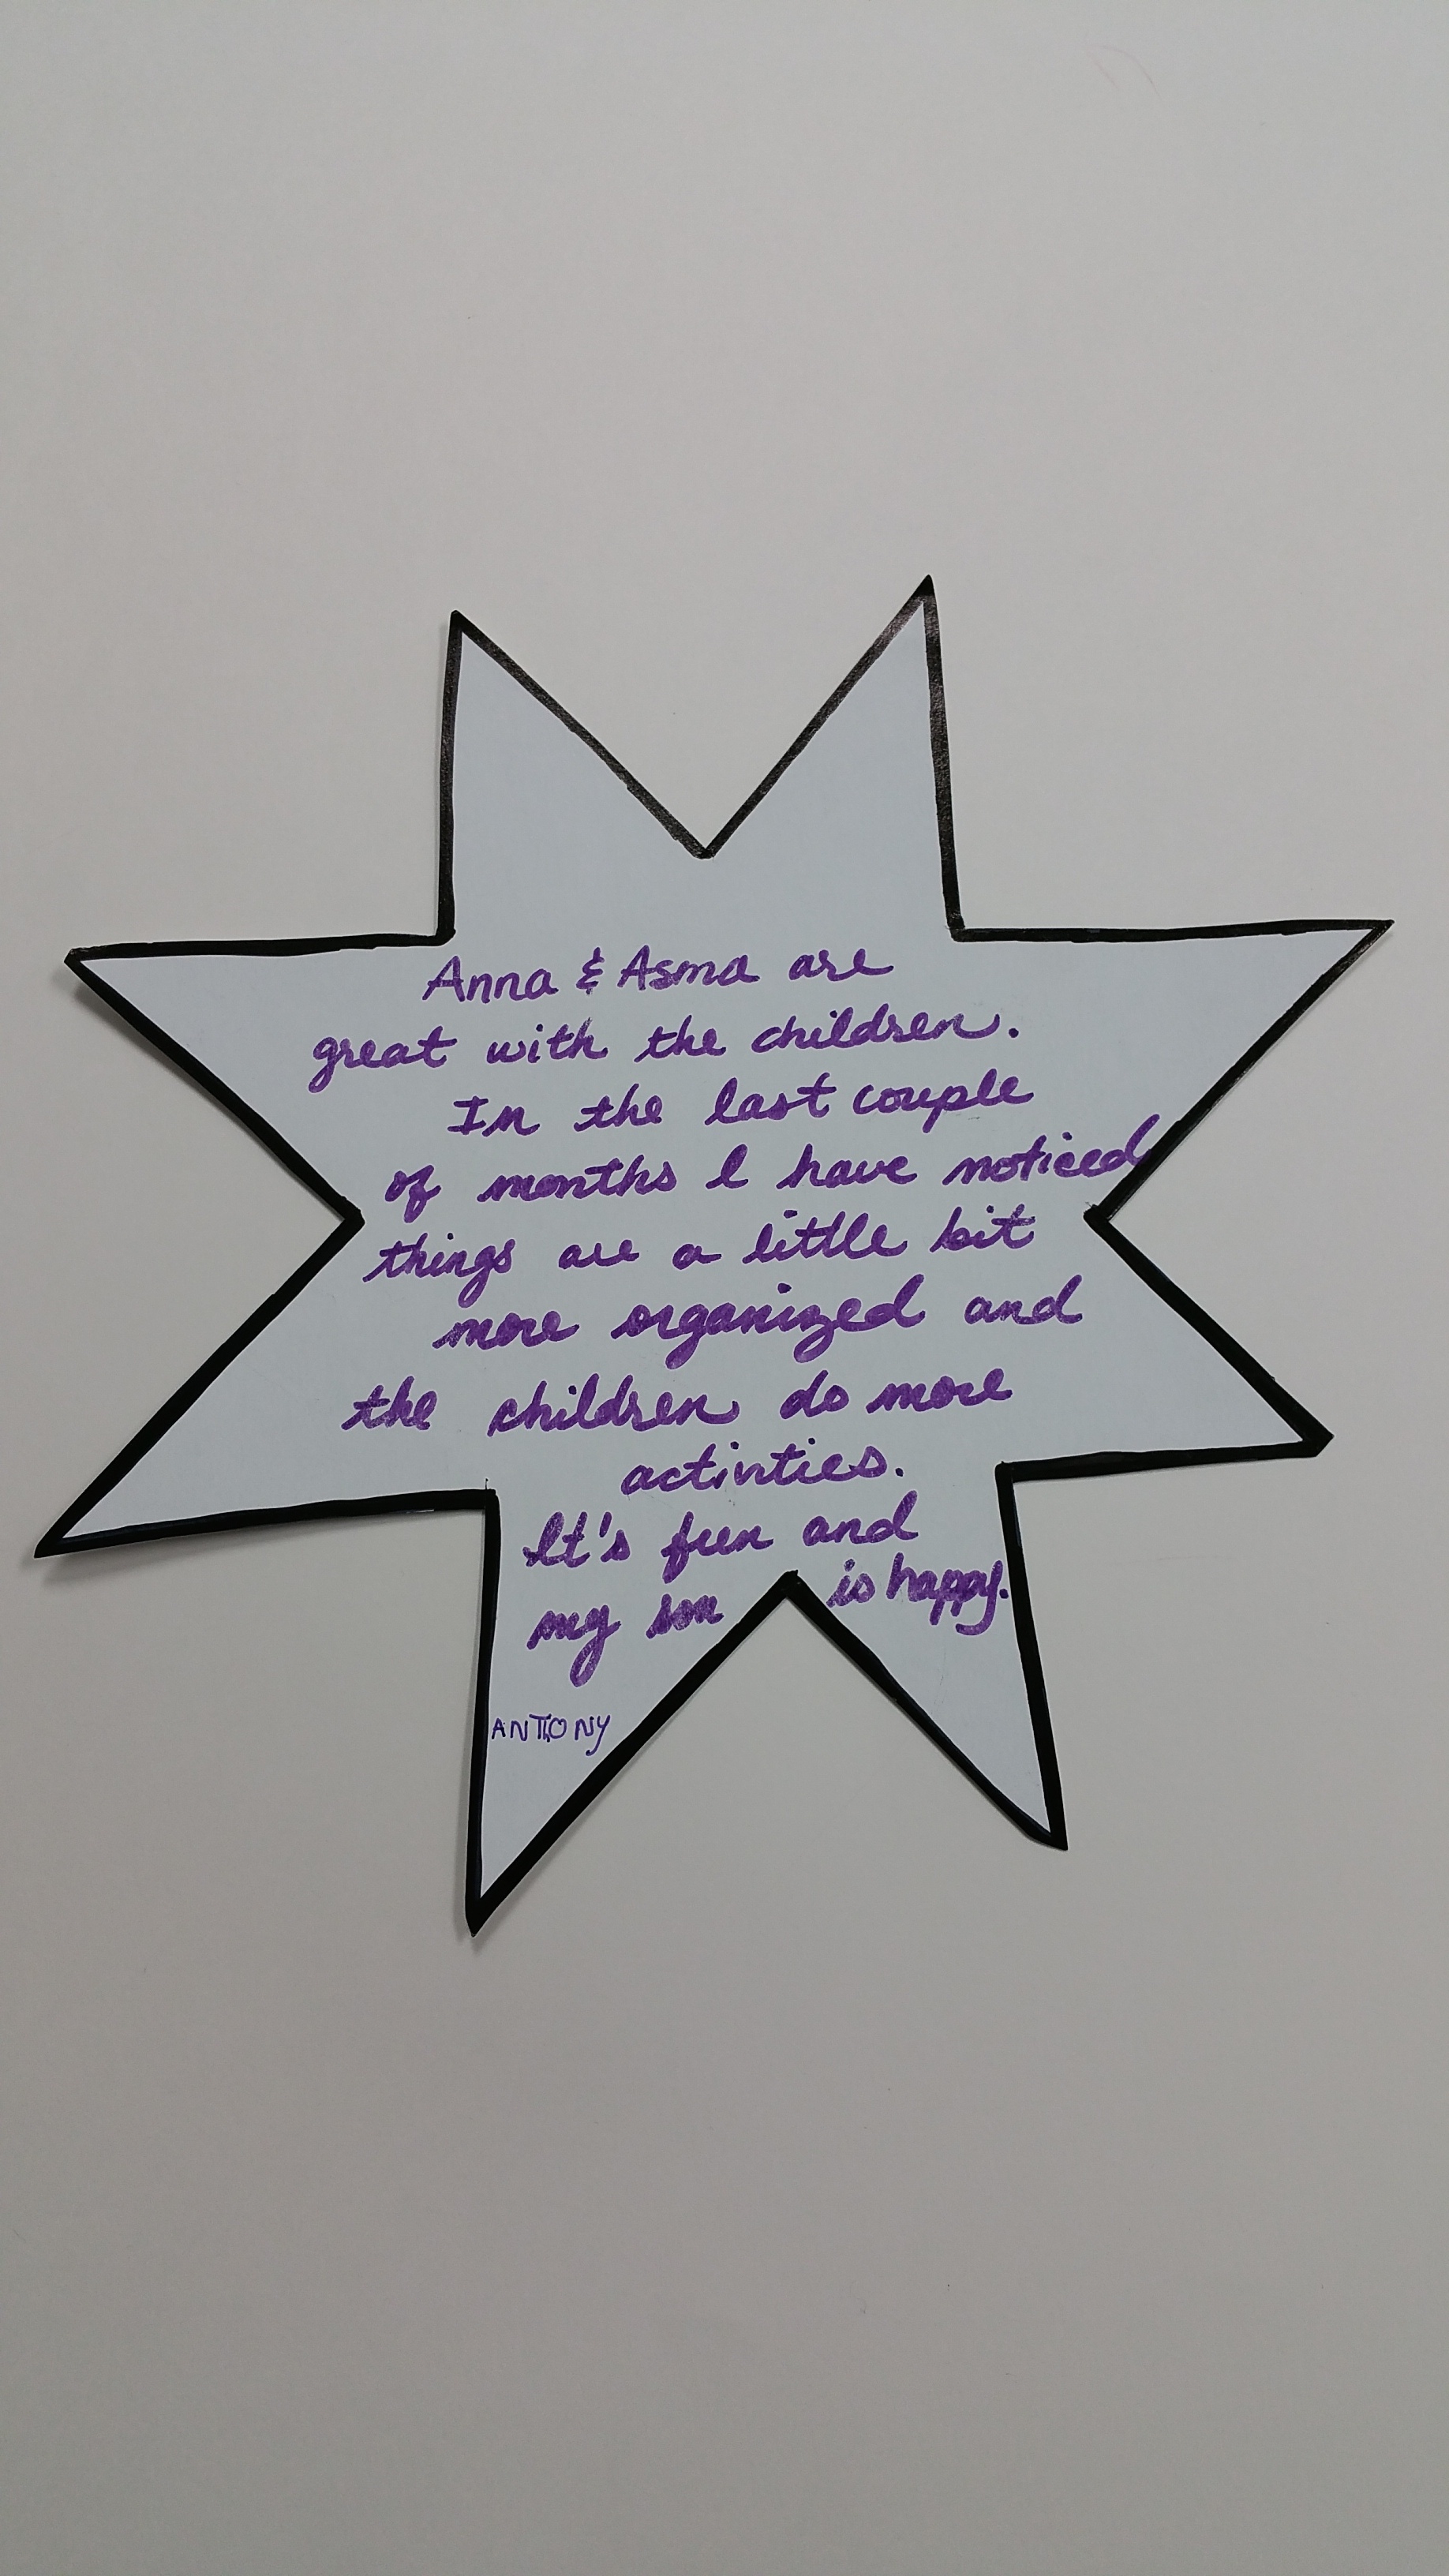 Anna & Asma are
great with the children.
In the last couple
of months I have noticed
things are a little bit
more organized and
the children do more
activities.
It's fun and
my son is happy.
ANTIONY